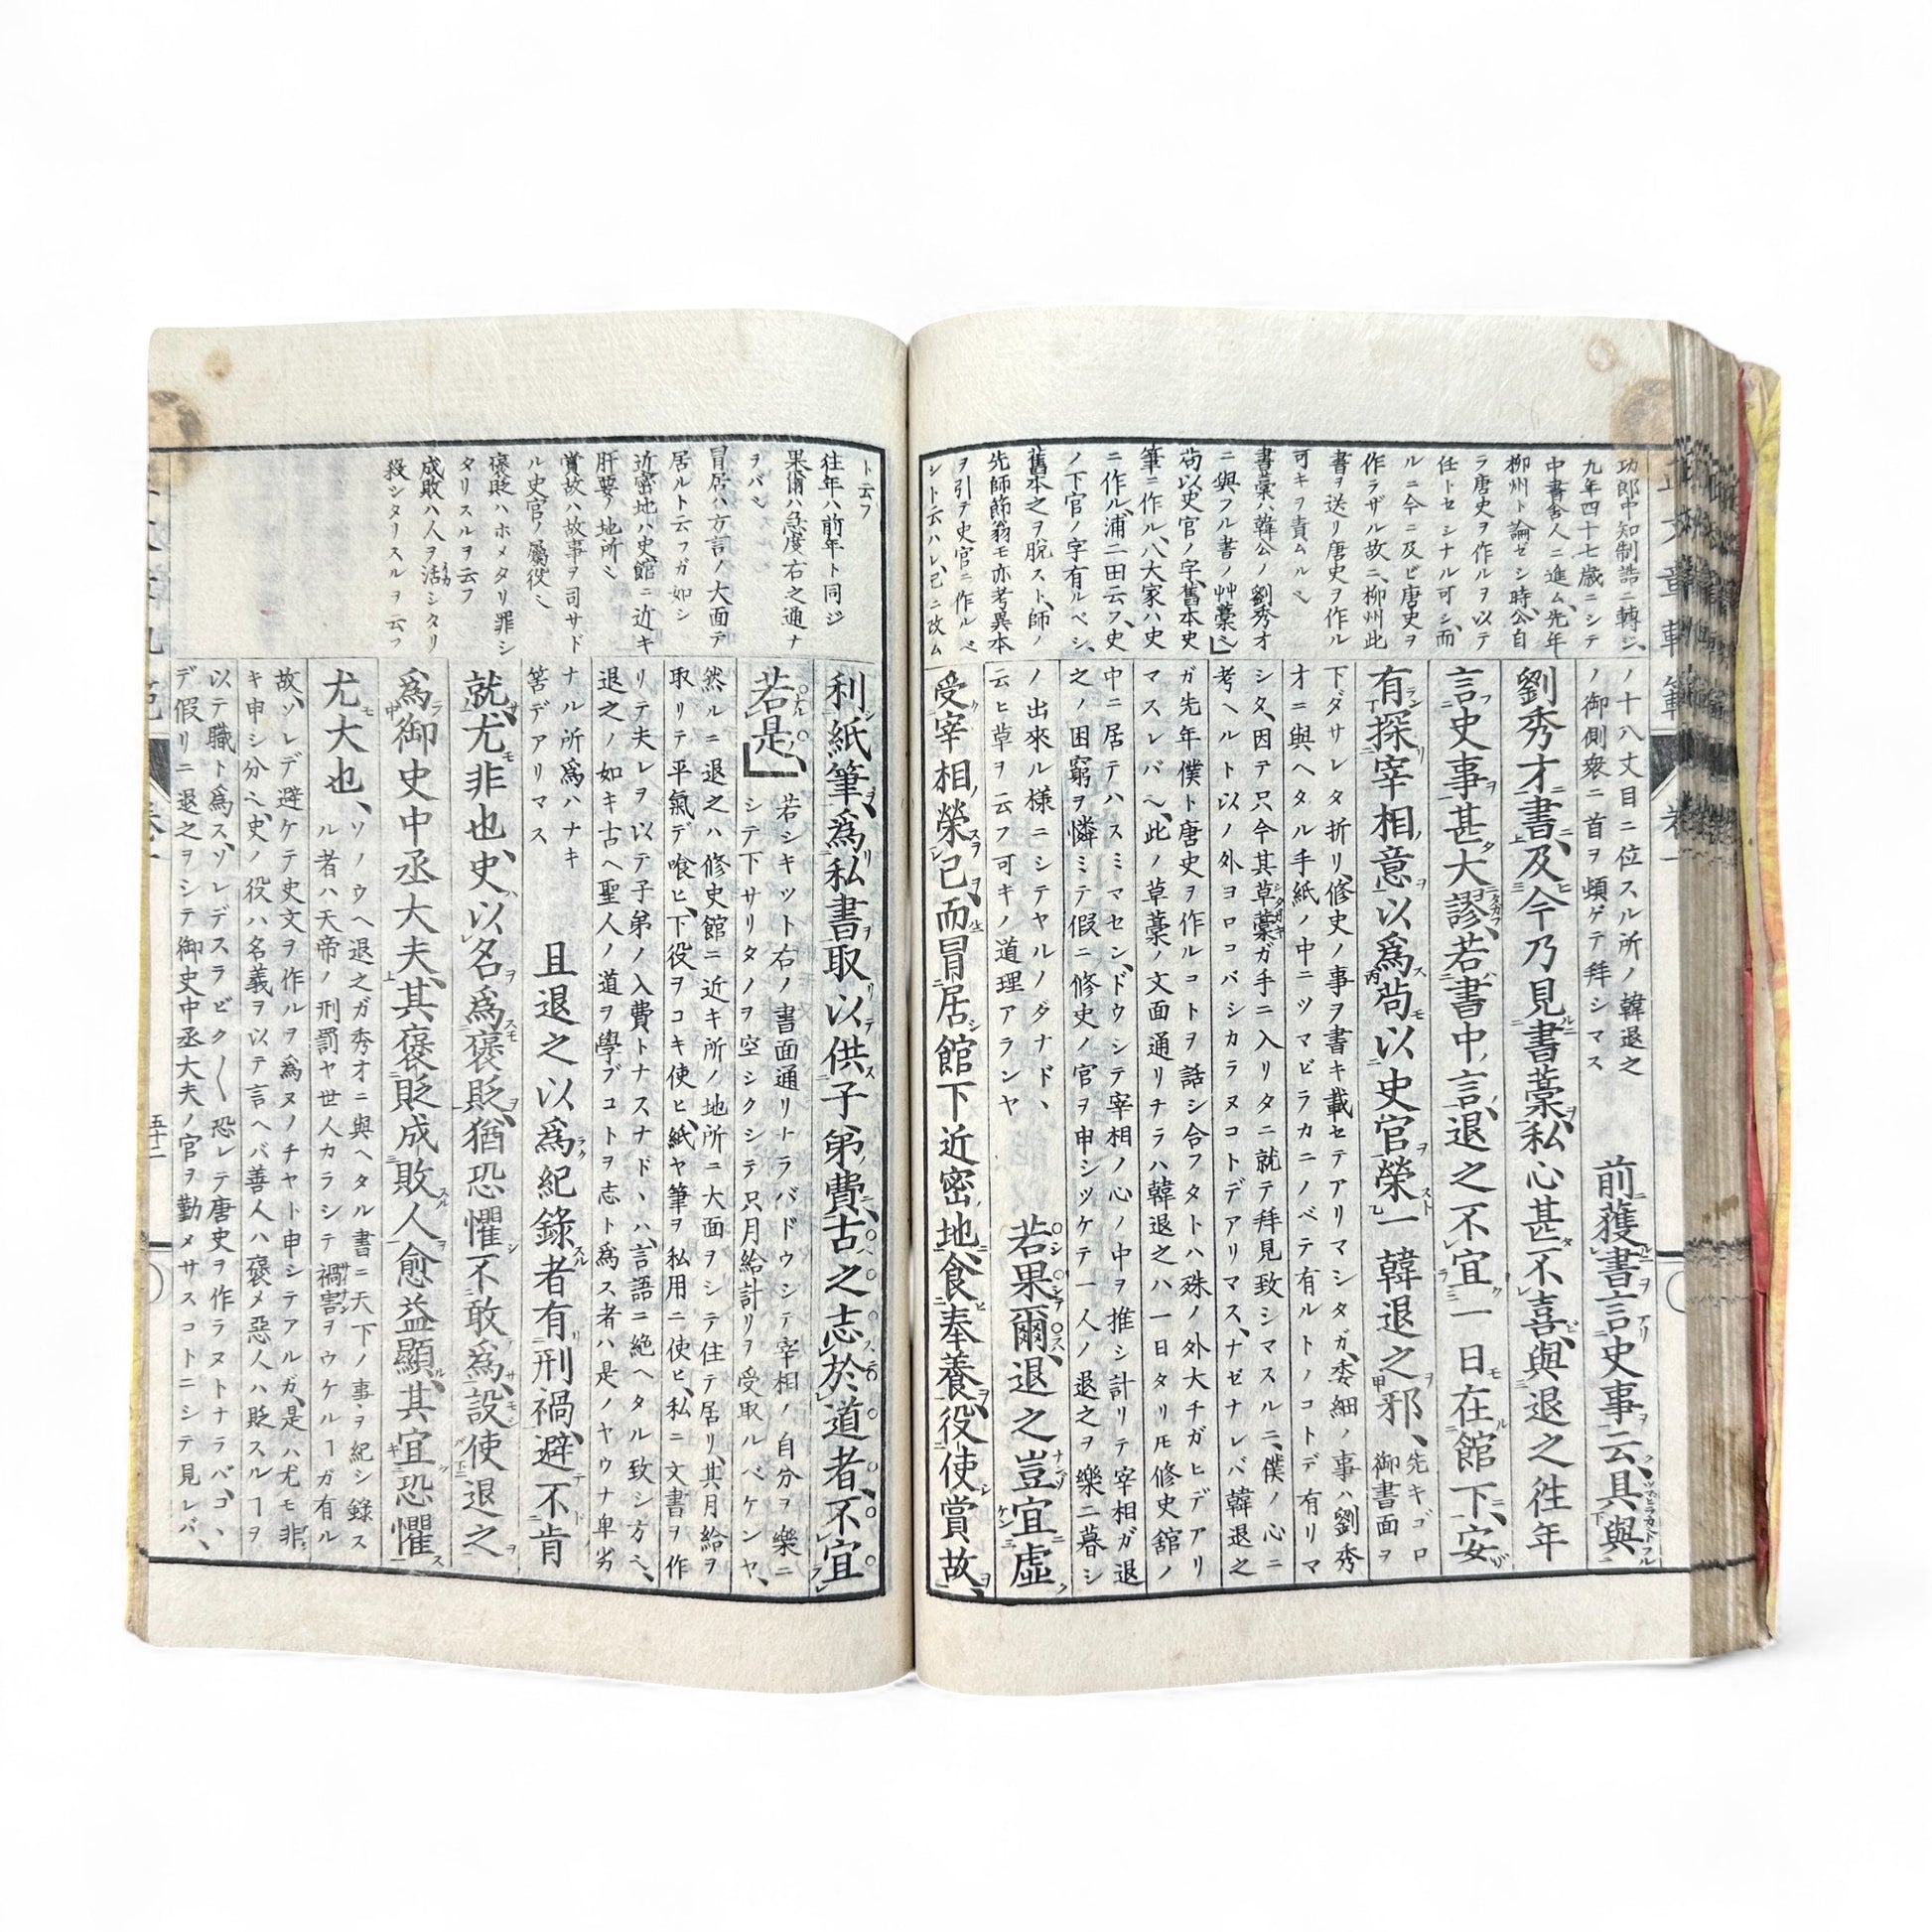 功郎中知制誥ニ轉シ、
九年四十七歳ニシテ
中書舎人ニ進ム、先年
柳州ト論ゼシ時、公自
ラ唐史ヲ作ルヲ以テ
任トセシナル可シ、而
ルニ今ニ及ビ唐史ヲ
作ラザル故ニ、柳州此
書ヲ送リ唐史ヲ作ル
可キヲ責ムルヘ
書藁ハ韓公ノ劉秀才
ニ與フル書ノ艸藁ヘ」
尚以史官ノ字、舊本史
筆ニ作ル、八大家ハ史
ニ作ル、浦二田云フ、史
ノ下官ノ字有ルベシ、
舊本之ヲ脱スト、師ノ
先師節翁モ亦考異本
ヲ引ヲ史官ニ作ルベ
シト云ハレ、己ニ改ム
ノ十八丈目ニ位スル所ノ韓退之
ノ御側衆ニ首ヲ頓ゲテ拜シマス
前獲書言史事云、具與
劉秀才書、及今乃見書藁、私心甚不喜、與退之往年
言史事甚大謬、若書中言、退之不宜一日在館下、安
有探宰相意以爲尚以史官榮一韓退之邪、
先キゴロ
御書面ヲ
下ダサレタ折リ、修史ノ事ヲ書キ載セテアリマシタガ、委細ノ事ハ劉秀
才ニ與ヘタル手紙ノ中ニツマビラカニノベテ有ルトノコトデ有リマ
シタ、因テ只今其草藁ガ手ニ入リタニ就テ拜見致シマスルニ、僕ノ心ニ
考ヘルト以ノ外ヨロコバシカラヌコトデアリマス、ナゼナレバ韓退之
ガ先年僕ト唐史ヲ作ルコトヲ話シ合フタトハ殊ノ外大チガヒデアリ
マスレバヘ、此ノ草藁ノ文面通リナラハ韓退之ハ一日タリモ修史舘ノ
中ニ居テハスミマセン、ドウシテ宰相ノ心ノ中ヲ推シ計リテ宰相ガ退
之ノ困窮ヲ憐ミテ假ニ修史ノ官ヲ申シツケテ一人ノ退之ヲ樂ニ暮シ
ノ出來ル樣ニシテヤルノダナド、
云ヒ草ヲ云フ可キノ道理アランヤ
若果爾、退之豈宜虛
受宰相榮己、而冒居館下、近密地、食奉養、役使賞故、
ト云フ
往年ハ前年ト同ジ
果爾ハ急度右之通ナ
ヲバヘ
冒居ハ方言ノ大面テ
居ルト云フガ如シ
近密地ハ史館ニ近キ
肝要ノ地所ヘ
賞故ハ故事ヲ司サド
ル史官ノ屬役ヘ
褒貶ハホメタリ罪シ
タリスルヲ云フ
成敗ハ人ヲ活シタリ
殺シタリスルヲ云フ
利紙筆、爲私書、取以供子弟費、古之志於道者、不宜
若是、」
若シキツト右ノ書面通リナラバドウシテ宰相ノ自分ヲ樂ニ
シテ下サリタノヲ空シクシテ只月給計リヲ受取ルベケンヤ、
然ルニ退之ハ修史館ニ近キ所ノ地所ニ大面ヲシテ住テ居リ、其月給ヲ
取リテ平氣デ喰ヒ、下役ヲコキ使ヒ、紙ヤ筆ヲ私用ニ使ヒ、私ニ文書ヲ作
リテ夫レヲ以テ子弟ノ入費トナスナド、ハ、言語ニ絶ヘタル致シ方ヘ、
退之ノ如キ古ヘ聖人ノ道ヲ學ブコトヲ志ト爲ス者ハ是ノヤウナ卑劣
ナル所爲ハナキ
筈デアリマス
且退之以爲紀錄者有刑禍、避不肯
就、尤非也、史以名爲褒貶、猶恐懼不敢爲、設使退之
爲御史中丞大夫、其褒貶成敗人愈益顯、其宜恐懼
尤大也、
ソノウヘ退之ガ秀才ニ與ヘタル書ニ天下ノ事ヲ紀シ錄ス
ル者ハ天帝ノ刑罰ヤ世人カラシテ禍害ヲウケルヿガ有ル
故、ソレデ避ケテ史文ヲ作ルヲ爲ヌノチヤト申シテアルガ、是ハ尤モ非
キ申シ分ヘ、史ノ役ハ名義ヲ以テ言ヘバ善人ハ褒メ惡人ハ貶スルヿヲ
以テ職ト爲ス、ソレデスラビク〳〵恐レテ唐史ヲ作ラヌトナラバ、コヽ
デ假リニ退之ヲシテ御史中丞大夫ノ官ヲ勤メサスコトニシテ見レバ、
五十二